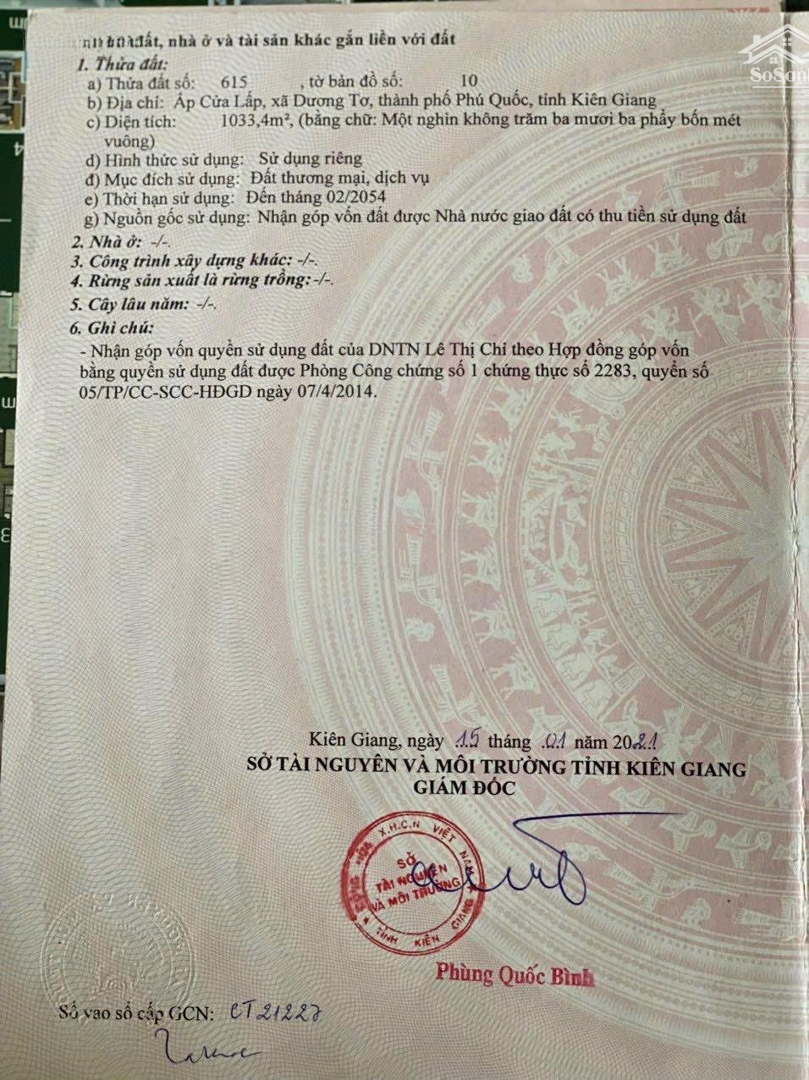 đất, nhà ở và tài sản khác gắn liền với đất
1. Thửa đất:
a) Thửa đất số: 615 , tờ bản đồ số: 10
b) Địa chỉ: Ấp Cửa Lấp, xã Dương Tơ, thành phố Phú Quốc, tỉnh Kiên Giang
c) Diện tích: 1033,4m², (bằng chữ: Một nghìn không trăm ba mươi ba phẩy bốn mét
vuông)
d) Hình thức sử dụng: Sử dụng riêng
đ) Mục đích sử dụng: Đất thương mại, dịch vụ
e) Thời hạn sử dụng: Đến tháng 02/2054
g) Nguồn gốc sử dụng: Nhận góp vốn đất được Nhà nước giao đất có thu tiền sử dụng đất
2. Nhà ở: -/-.
3. Công trình xây dựng khác: -/-.
4. Rừng sản xuất là rừng trồng: -/-.
5. Cây lâu năm: -/-.
6. Ghi chú:
- Nhận góp vốn quyền sử dụng đất của DNTN Lê Thị Chỉ theo Hợp đồng góp vốn
bằng quyền sử dụng đất được Phòng Công chứng số 1 chứng thực số 2283, quyển số
05/TP/CC-SCC-HĐGD ngày 07/4/2014.
Kiên Giang, ngày 15 tháng 01 năm 2021
SỞ TÀI NGUYÊN VÀ MÔI TRƯỜNG TỈNH KIÊN GIANG
GIÁM ĐỐC
CỘNG HÒA X.H.C.N VIỆT NAM
SỞ
TÀI NGUYÊN
VÀ MÔI TRƯỜNG
TỈNH KIÊN GIANG
Phùng Quốc Bình
Số vào sổ cấp GCN: CT21227